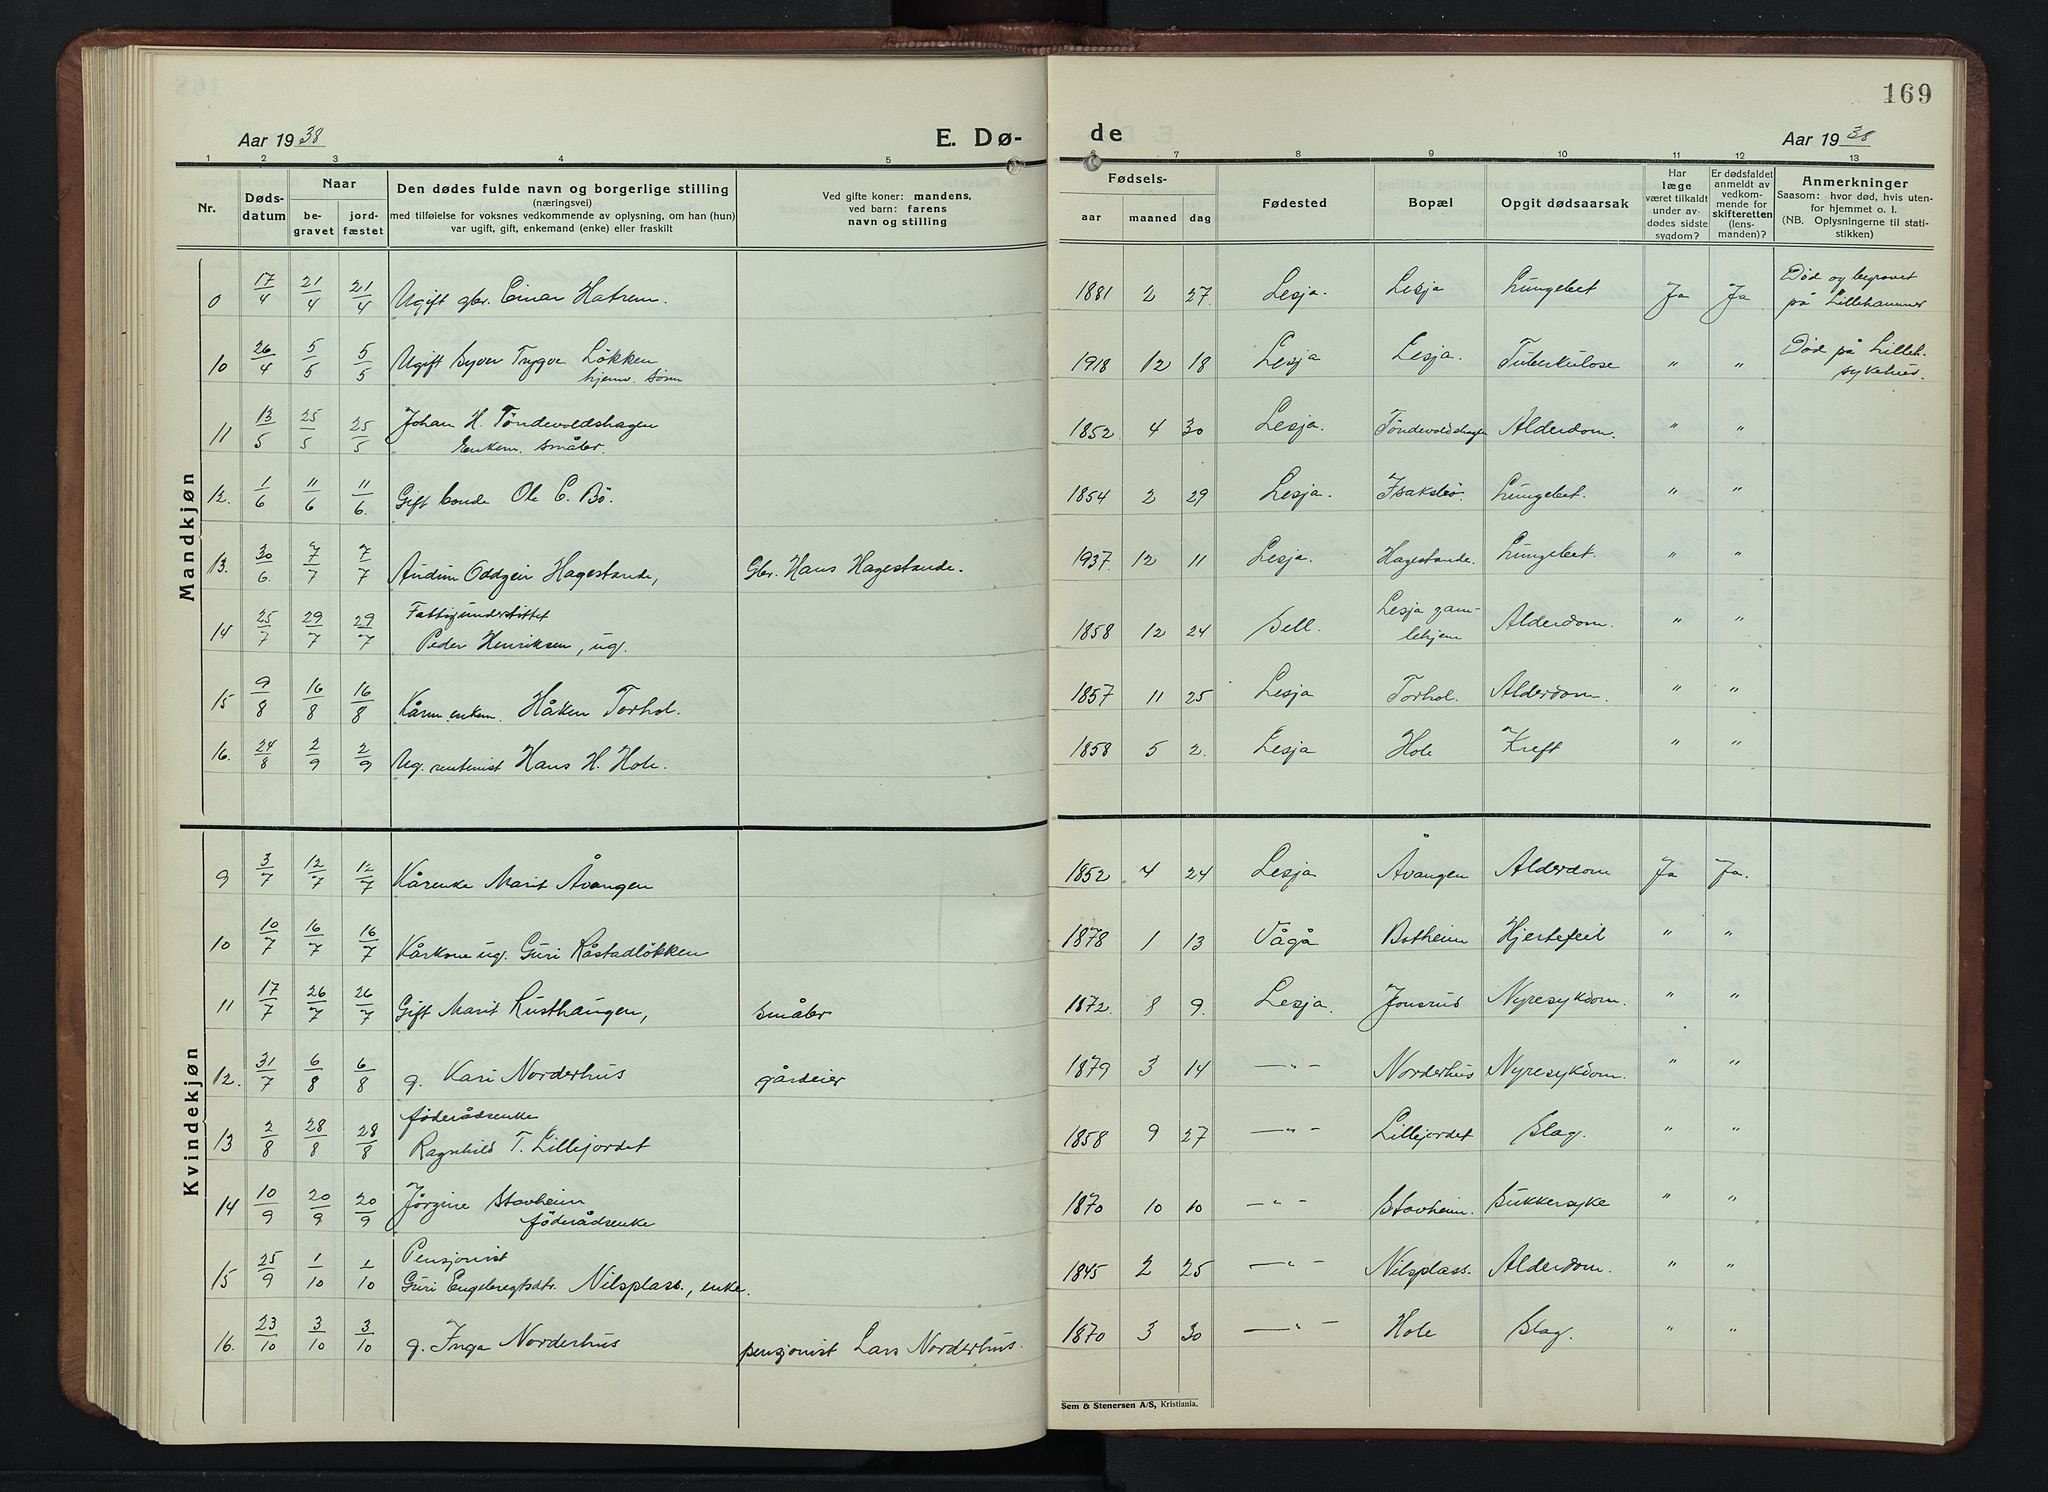 169
Aar 1938 E. Dø- de Aar 1938
1 2 3 4 5 6 7 8 9 10 11 12 13
Nr.
Dødsdatum
Naar
begravet
jordfæstet
Den dødes fulde navn og borgerlige stilling
(næringsvei)
med tilføielse for voksnes vedkommende av oplysning, om han (hun)
var ugift, gift, enkemand (enke) eller fraskilt
Ved gifte koner: mandens,
ved barn: farens
navn og stilling
Fødsels-
aar maaned dag
Fødested
Bopæl
Opgit dødsaarsak
Har
læge
været tilkaldt
under av-
dødes sidste
sygdom?
Er dødsfaldet
anmeldt av
vedkom-
mende for
skifteretten
(lens-
manden)?
Anmerkninger
Saasom: hvor død, hvis uten-
for hjemmet o. l.
(NB. Oplysningerne til stati-
stikken)
Mandkjøn
9 17/4 21/4 21/4 Ugift gbr. Einar Hatrem. 1881 2 27. Lesja. Lesja Lungebet Ja Ja Død og begravet
på Lillehammer
10 26/4 5/5 5/5 Ugift Syver Trygve Løkken 1918 12 18 Lesja Lesja. Tuberkulose " " Død på Lilleh.
hjemv. sønn sykehus.
11 13/5 25/5 25/5 Johan H. Tøndevoldshagen 1852 4 30 Lesja. Tøndevoldshagen Alderdom. " "
Enkem. småbr.
12. 1/6 11/6 11/6. Gift bonde Ole C. Bö. 1854 2 29 Lesja. Isaksbö. Lungebet. " "
13. 30/6. 7/7 7/7 Audun Oddgeir Hagestande, Gbr. Hans Hagestande. 1937. 12 11 Lesja. Hagestande. Lungebet. " "
14 25/7 29/7 29/7 Fattigunderstöttet
Peder Henriksen, ug. 1858 12 24 Sell. Lesja gam-
lehjem Alderdom. " "
15 9/8 16/8 16/8 Kårm. enkem. Håken Torhol. 1857 11 25 Lesja Torhol. Alderdom. " "
16. 24/8 2/9 2/9 Ug. rentenist Hans H. Hole. 1858 5 2. Lesja Hole Kreft " "
Kvindekjøn
9 3/7 12/7 12/7 Kårenke Marit Åvangen 1852 4 24 Lesja Åvangen Alderdom Ja Ja.
10 10/7 16/7 16/7 Kårkone ug. Guri Råstadløkken 1878 1 13 Vågå Botheim Hjertefeil " "
11 17/7 26/7 26/7 Gift Marit Rusthaugen, småbr 1872. 8 9. Lesja. Jonsrud Nyresykdom. " "
12. 31/7 6/8 6/8 g. Kari Norderhus gårdeier 1879 3 14 — " - Norderhus Nyresykdom. " "
13 2/8 28/8 28/8 føderådsenke
Ragnhild T. Lillejordet 1858 9 27 — " - Lillejordet Slag. " "
14 10/9 20/9 20/9 Jörgine Stavheim 1870 10 10 — " - Stavheim. Sukkersyke " "
føderådsenke
15 25/9 1/10 1/10 Pensjonist
Guri Engebregtsdtr. Nilsplass., enke. 1845 2 25 — " - Nilsplass. Alderdom. " "
16. 23/10 3/10 3/10 g. Inga Norderhus pensjonist Lars Norderhus. 1870 3 30 — " - Hole Slag. " "
Sem & Stenersen A/S, Kristiania.